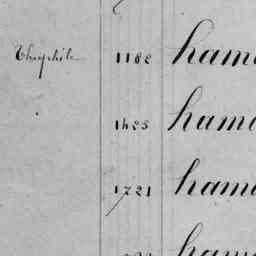 Théophile 1182 ham
1425 ham
1721 ham
ham